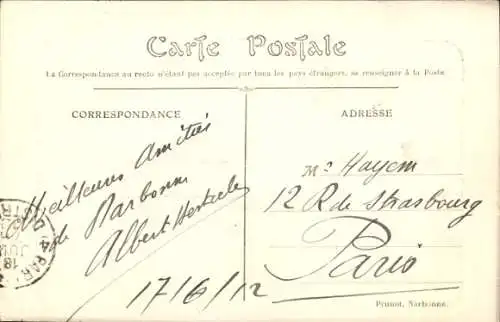 Carte Postale
La Correspondance au recto n'étant pas acceptée par tous les pays étrangers, se renseigner à la Poste
CORRESPONDANCE
ADRESSE
Meilleures amitiés
de Narbonne
Albert
17/6/12
Mr Hayem
12 R de Strasbourg
Paris
PAR
DISTR
18
Prunot, Narbonne.